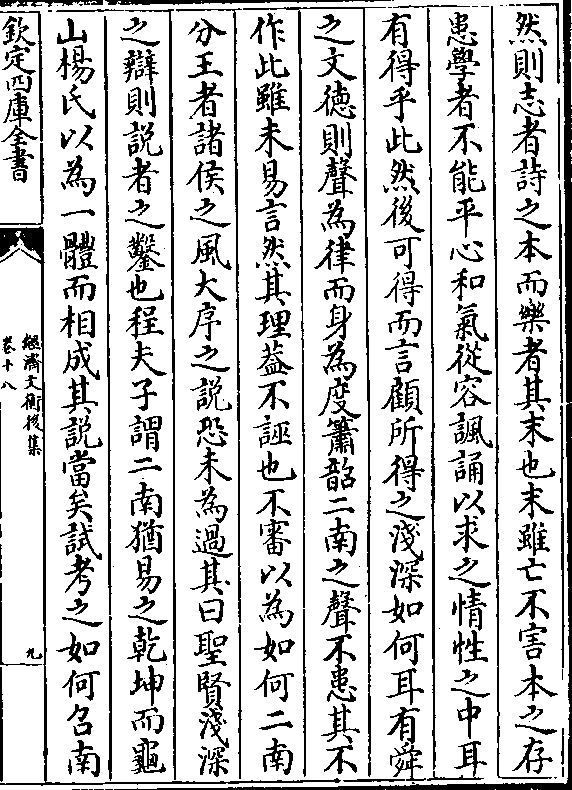 然則志者詩之本而樂者其末也末雖亡不害本之存
患學者不能平心和氣從容諷誦以求之情性之中耳
有得乎此然後可得而言顧所得之淺深如何耳有舜
之文德則聲為律而身為度簫韶二南之聲不患其不
作此雖未易言然其理葢不誣也不審以為如何二南
分王者諸侯之風大序之說恐未為過其曰聖賢淺深
之辯則說者之鑿也程夫子謂二南猶易之乾坤而龜
山楊氏以為一體而相成其說當矣試考之如何召南
欽定四庫全書
經濟文衡後集
卷十八
九